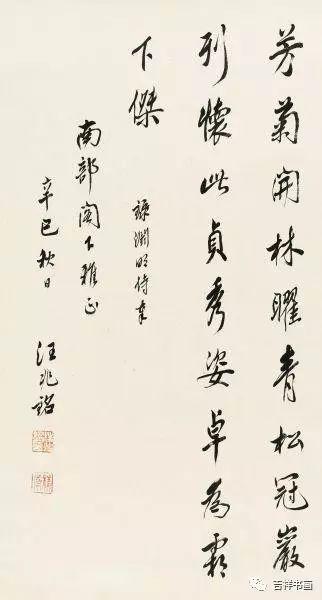 芳菊開林曜青松冠巖
列懷此貞秀姿卓為霜
下傑
錄淵明詩奉
南部閣下雅正
辛巳秋日
汪兆銘
吉祥书画